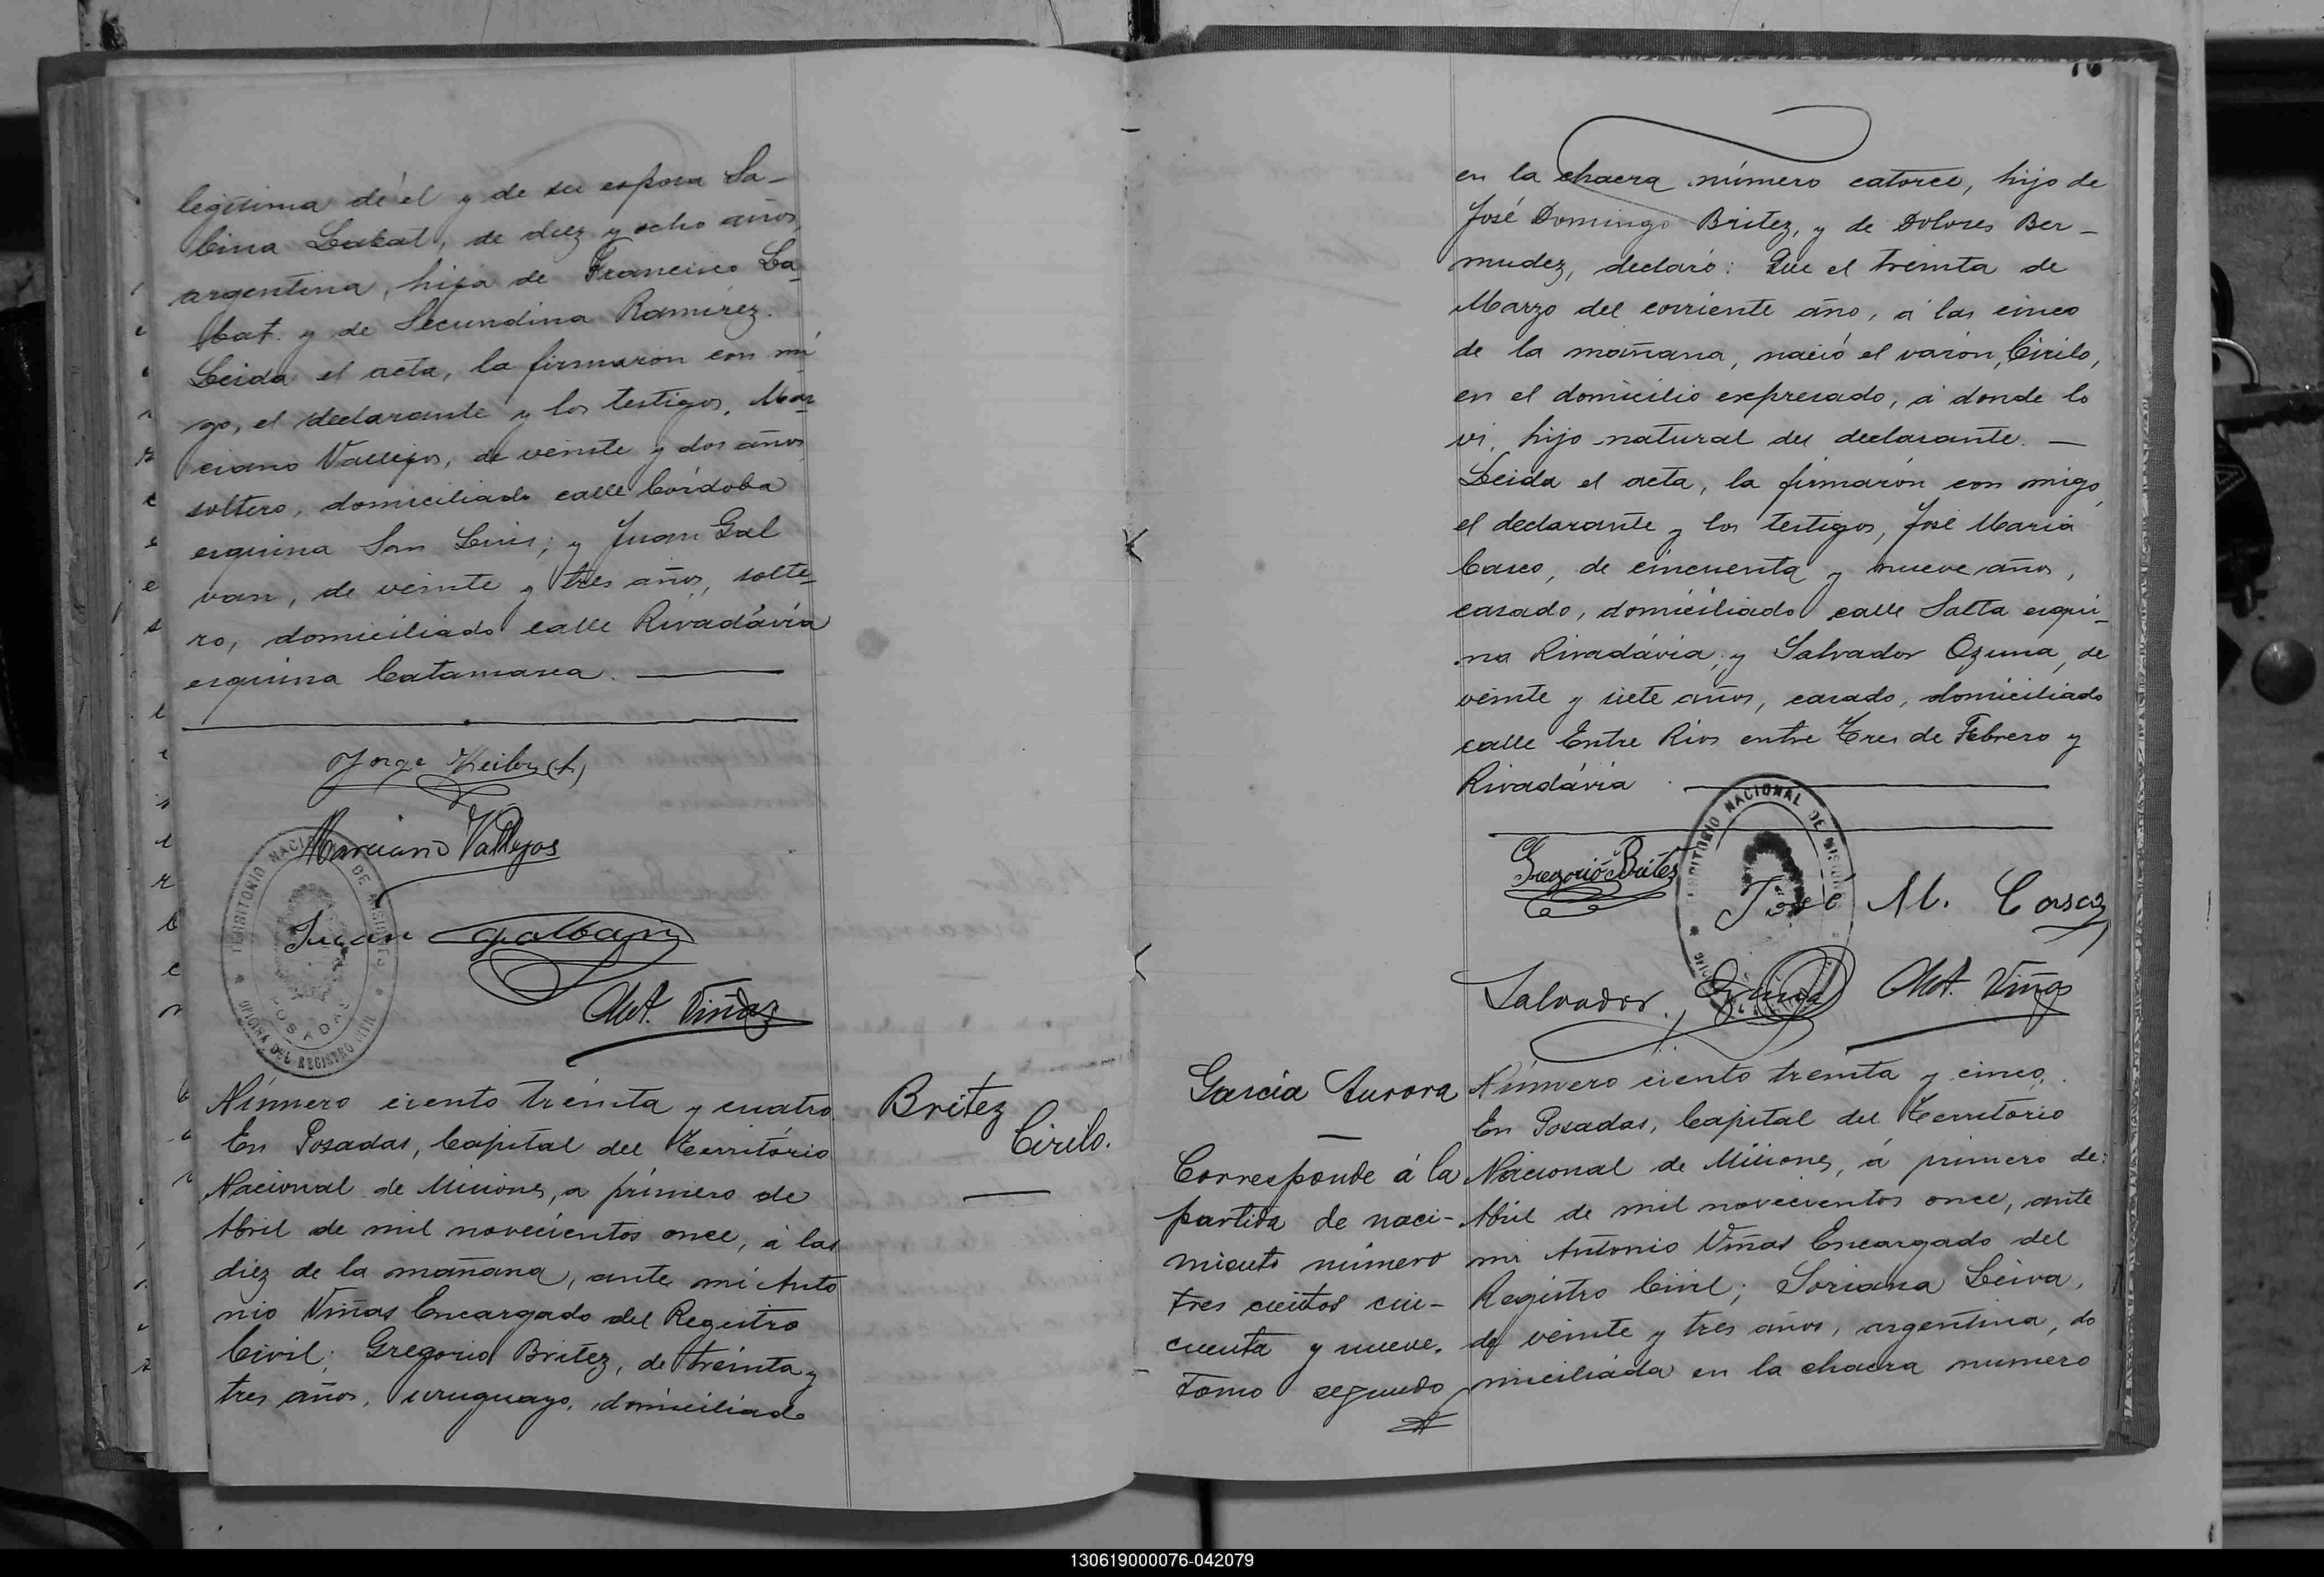 legítima de él y de su esposa Sa-
bina Labat, de diez y ocho años,
argentina, hija de Francisco La-
bat y de Secundina Ramírez.
Leida el acta, la firmaron con mi
go, el declarante y los testigos, Mar-
ciano Vallejos, de veinte y dos años
soltero, domiciliado calle Córdoba
esquina San Luis; y Juan Gal
van, de veinte y tres años, solte-
ro, domiciliado calle Rivadávia
esquina Catamarca.
Jorge (h)
Marciano Vallejos
Juan Galban
Ant. Viñas
TERRITORIO NACIONAL DE MISIONES
POSADAS
OFICINA DEL REGISTRO CIVIL
Britez
Cirilo.
Número ciento treinta y cuatro.
En Posadas, Capital del Território
Nacional de Misiones, a primero de
Abril de mil novecientos once, á las
diez de la mañana, ante mi Anto
nio Viñas Encargado del Registro
Civil; Gregorio Britez, de treinta y
tres años, uruguayo, domiciliado
76
en la chacra número catorce, hijo de
José Domingo Britez, y de Dolores Ber-
mudez, declaró: Que el treinta de
Marzo del corriente año, á las cinco
de la mañana, nació el varón, Cirilo,
en el domicilio expresado, á donde lo
vi, hijo natural del declarante.
Leida el acta, la firmarón con migo,
el declarante y los testigos, José Maria
Casco, de cincuenta y nueve años,
casado, domiciliado calle Salta esqui-
na Rivadávia; y Salvador Ozuna, de
veinte y siete años, casado, domiciliado
calle Entre Rios entre Tres de Febrero y
Rivadávia
Gregorio Britez
José M. Casco
Salvador Ozuna
Ant. Viñas
TERRITORIO NACIONAL DE MISIONES
García Aurora
Corresponde á la
partida de naci-
miento número
tres cientos cin-
cuenta y nueve.
Tomo segundo
Número ciento treinta y cinco.
En Posadas, Capital del Território
Nacional de Misiones, á primero de
Abril de mil novecientos once, ante
mi Antonio Viñas Encargado del
Registro Civil; Soriana Leiva,
de veinte y tres años, argentina, do
miciliada en la chacra numero
130619000076-042079